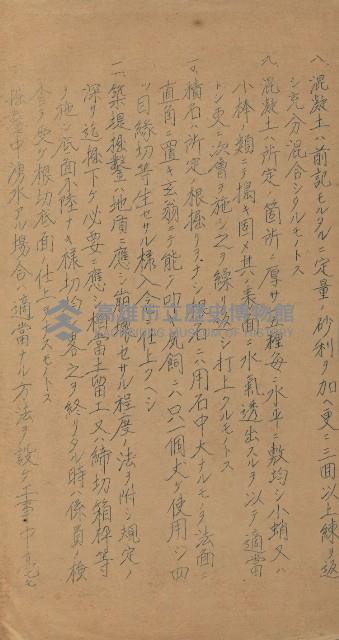 八、混凝土ハ前記モルタルニ定量ノ砂利ヲ加ヘ更ニ三回以上練リ返
シ充分混合シタルモノトス
九、混凝土ハ所定ノ箇所ニ厚サ五種每ニ水平ニ敷均シ小蛸又ハ
小棒類ニテ搗キ固メ其ノ表面ニ水氣透出スルヲ以テ適當
トシ更ニ次層ヲ施シ之ヲ繰 打上クルモノトス
積石ハ所定ノ根掘リヲナシ根石ニハ用石中大ナルモノヲ法面ニ
直角ニ置キ玄翁ニテ能ク叩 尻飼ニハ口 一個 ケ使用シ四
ツ目緣切等生セサル樣入念仕上クヘシ
二、築堤掘鑿ハ地質ニ應シ崩壞セサル程度ノ法ヲ附シ規定ノ
深サ迄掘下ケ必要ニ應シ相當土留工又ハ締切箱枠等
ヲ施シ底面不陸ナキ樣切均シ 之ヲ終リタル時ハ係員ノ檢
查ヲ受ケ根切底面仕上 スモノトス
掘鑿中湧水アル場合ハ適當ナル方法ヲ設ケ工事中
高雄市立歷史博物館
KAOHSIUNG MUSEUM OF HISTORY